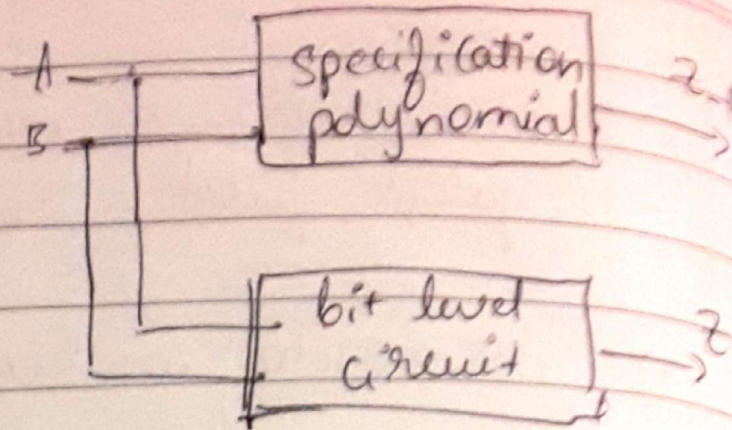 A
specification
polynomial
B
bit level
circuit
Z